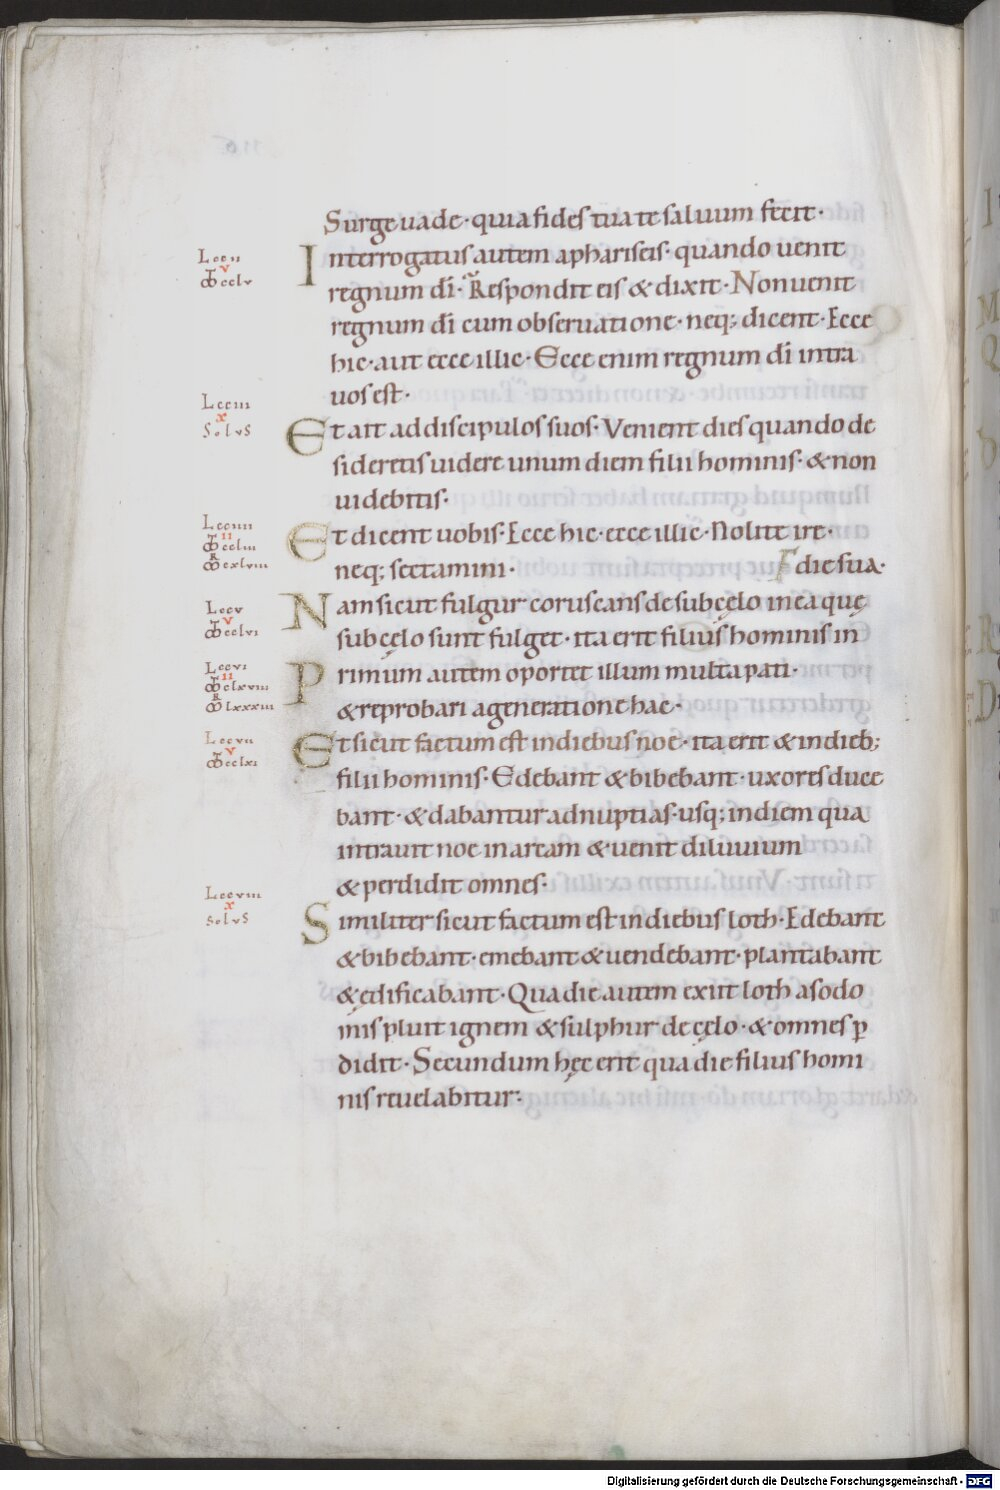 Surge uade · quia fides tua te saluum fecit ·
L ccii
Interrogatus autem a phariseis · quando uenit
V
M cclv
regnum dī · Respondit eis & dixit · Non uenit
regnum dī cum obseruatione · neq; dicent · Ecce
hic · aut ecce illic · Ecce enim regnum dī intra
uos est ·
L cciii
x
Solus
Et ait ad discipulos suos · Venient dies quando de
sideretis uidere unum diem filii hominis · & non
uidebitis ·
L cciiii
II
M cclii
R
M cxlviii
Et dicent uobis · Ecce hic · ecce illic · Nolite ire ·
neq; sectamini ·
die sua ·
L ccv
V
M cclvi
Nam sicut fulgur coruscans de sub cęlo in ea quę
sub cęlo sunt fulget · ita erit filius hominis in
L ccvi
II
M clxviii
R
M lxxxiii
Primum autem oportet illum multa pati ·
& reprobari a generatione hac ·
L ccvii
V
M cclxi
Et sicut factum est in diebus noe · ita erit & in dieb;
filii hominis · Edebant & bibebant · uxores duce
bant · & dabantur ad nuptias · usq; in diem qua
intrauit noe in arcam & uenit diluuium
& perdidit omnes ·
L ccviii
x
Solus
Similiter sicut factum est in diebus loth · Edebant
& bibebant · emebant & uendebant · plantabant
& ędificabant · Qua die autem exiit loth a sodo
mis pluit ignem & sulphur de cęlo · & omnes p̱
didit · Secundum hęc erit qua die filius homi
nis reuelabitur ·
Digitalisierung gefördert durch die Deutsche Forschungsgemeinschaft · DFG